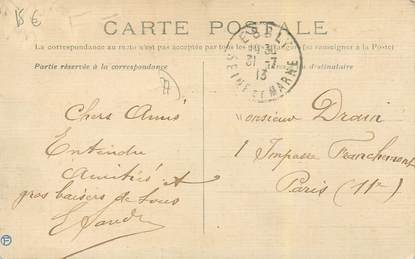 15 €
CARTE POSTALE
La correspondance au recto n'est pas acceptée par tous les pays étrangers (se renseigner à la Poste)
Partie réservée à la correspondance
destinataire
31 -7
13
SEINE ET MARNE
Chers Amis
Entendu
Amitiés et
gros baisers de tous
Monsieur Drain
1 Impasse Franchemont
Paris (11e)